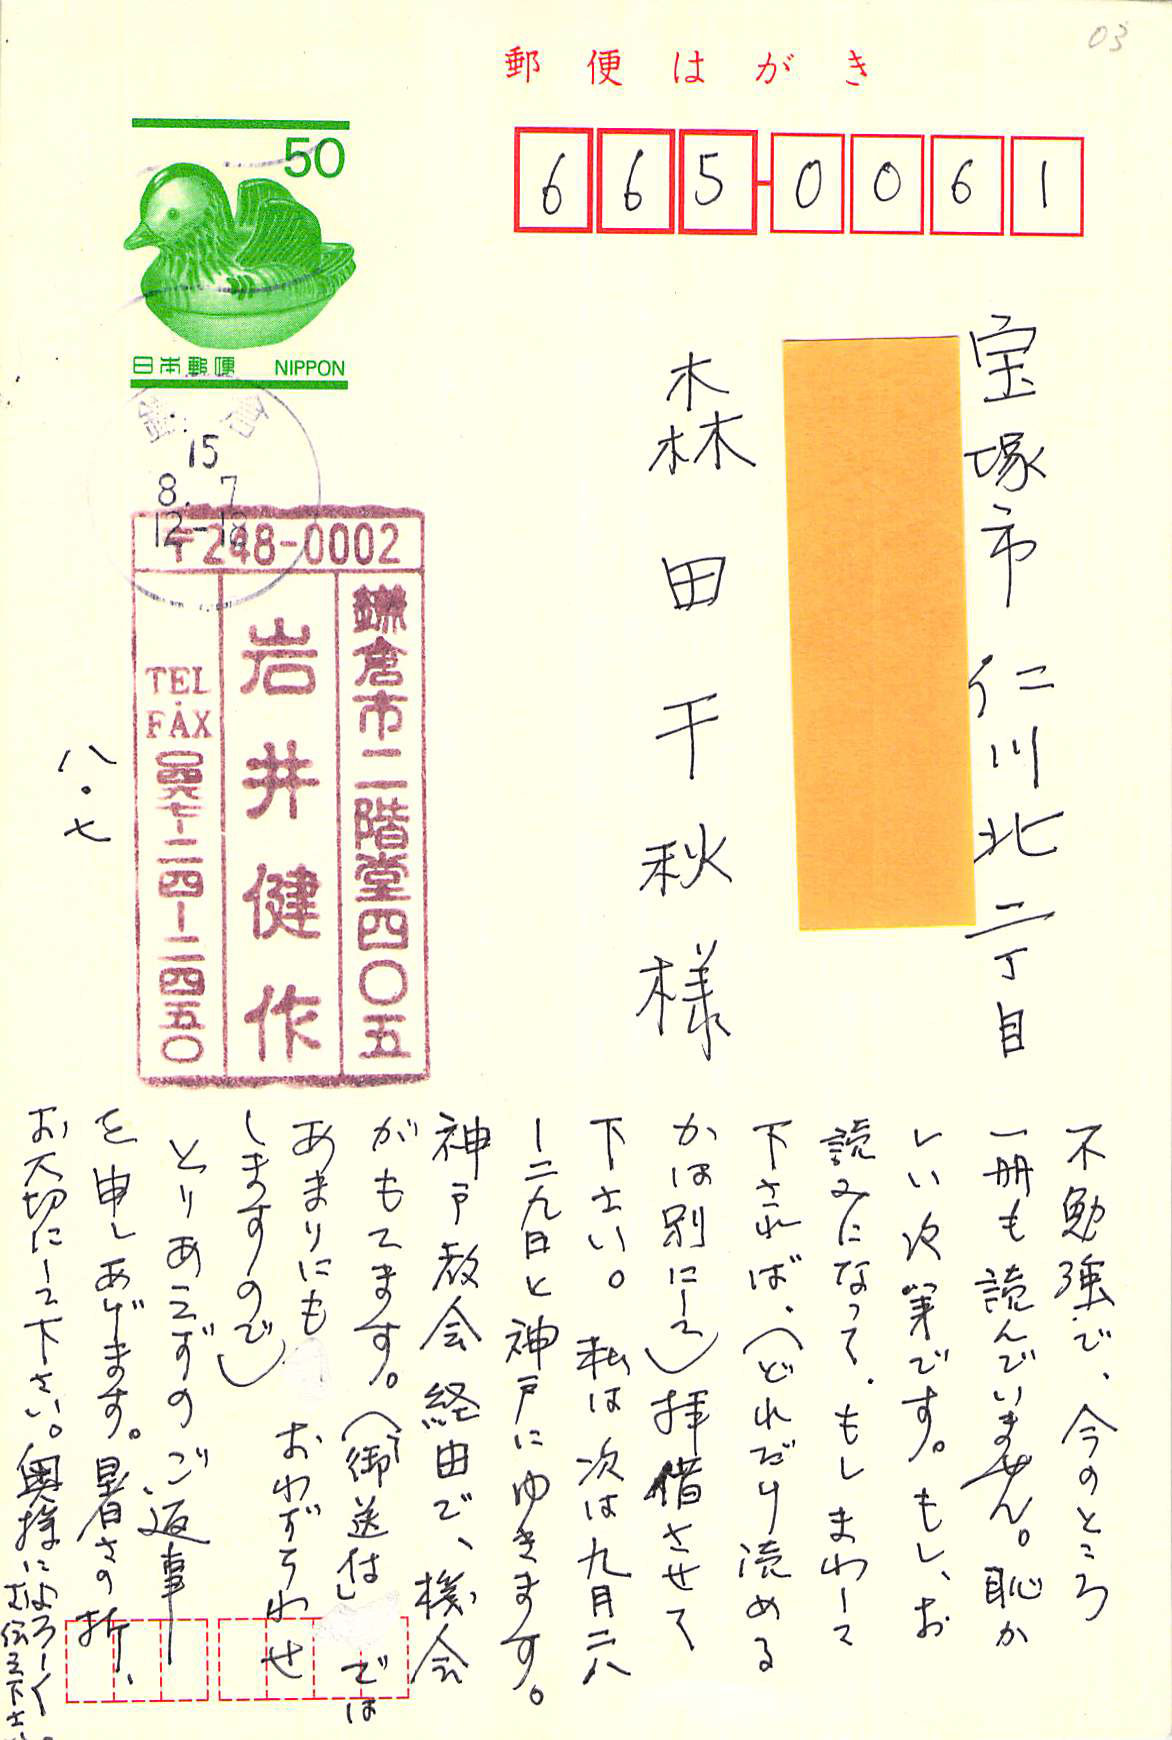 03
郵便はがき
665-0061
50
日本郵便 NIPPON
鎌倉
15
8. 7
12-18
宝塚市仁川北二丁目
森田干秋様
〒248-0002
鎌倉市二階堂四〇五
岩井健作
TEL・FAX 〇四六七-二四-二四五〇
八・七
不勉強で、今のところ
一冊も読んでいません。恥か
しい次第です。もし、お
読みになって、もしまわして
下されば、(どれだけ読める
かは別にして)拝借させて
下さい。私は次は九月二八
ー二九日と神戸にゆきます。
神戸教会経由で、機会
がもてます。(「御送付」では
あまりにも おわずらわせ
しますすので)
とりあえずのご返事
を申しあげます。暑さの折、
お大切にして下さい。奥様によろしく
お伝え下さい。